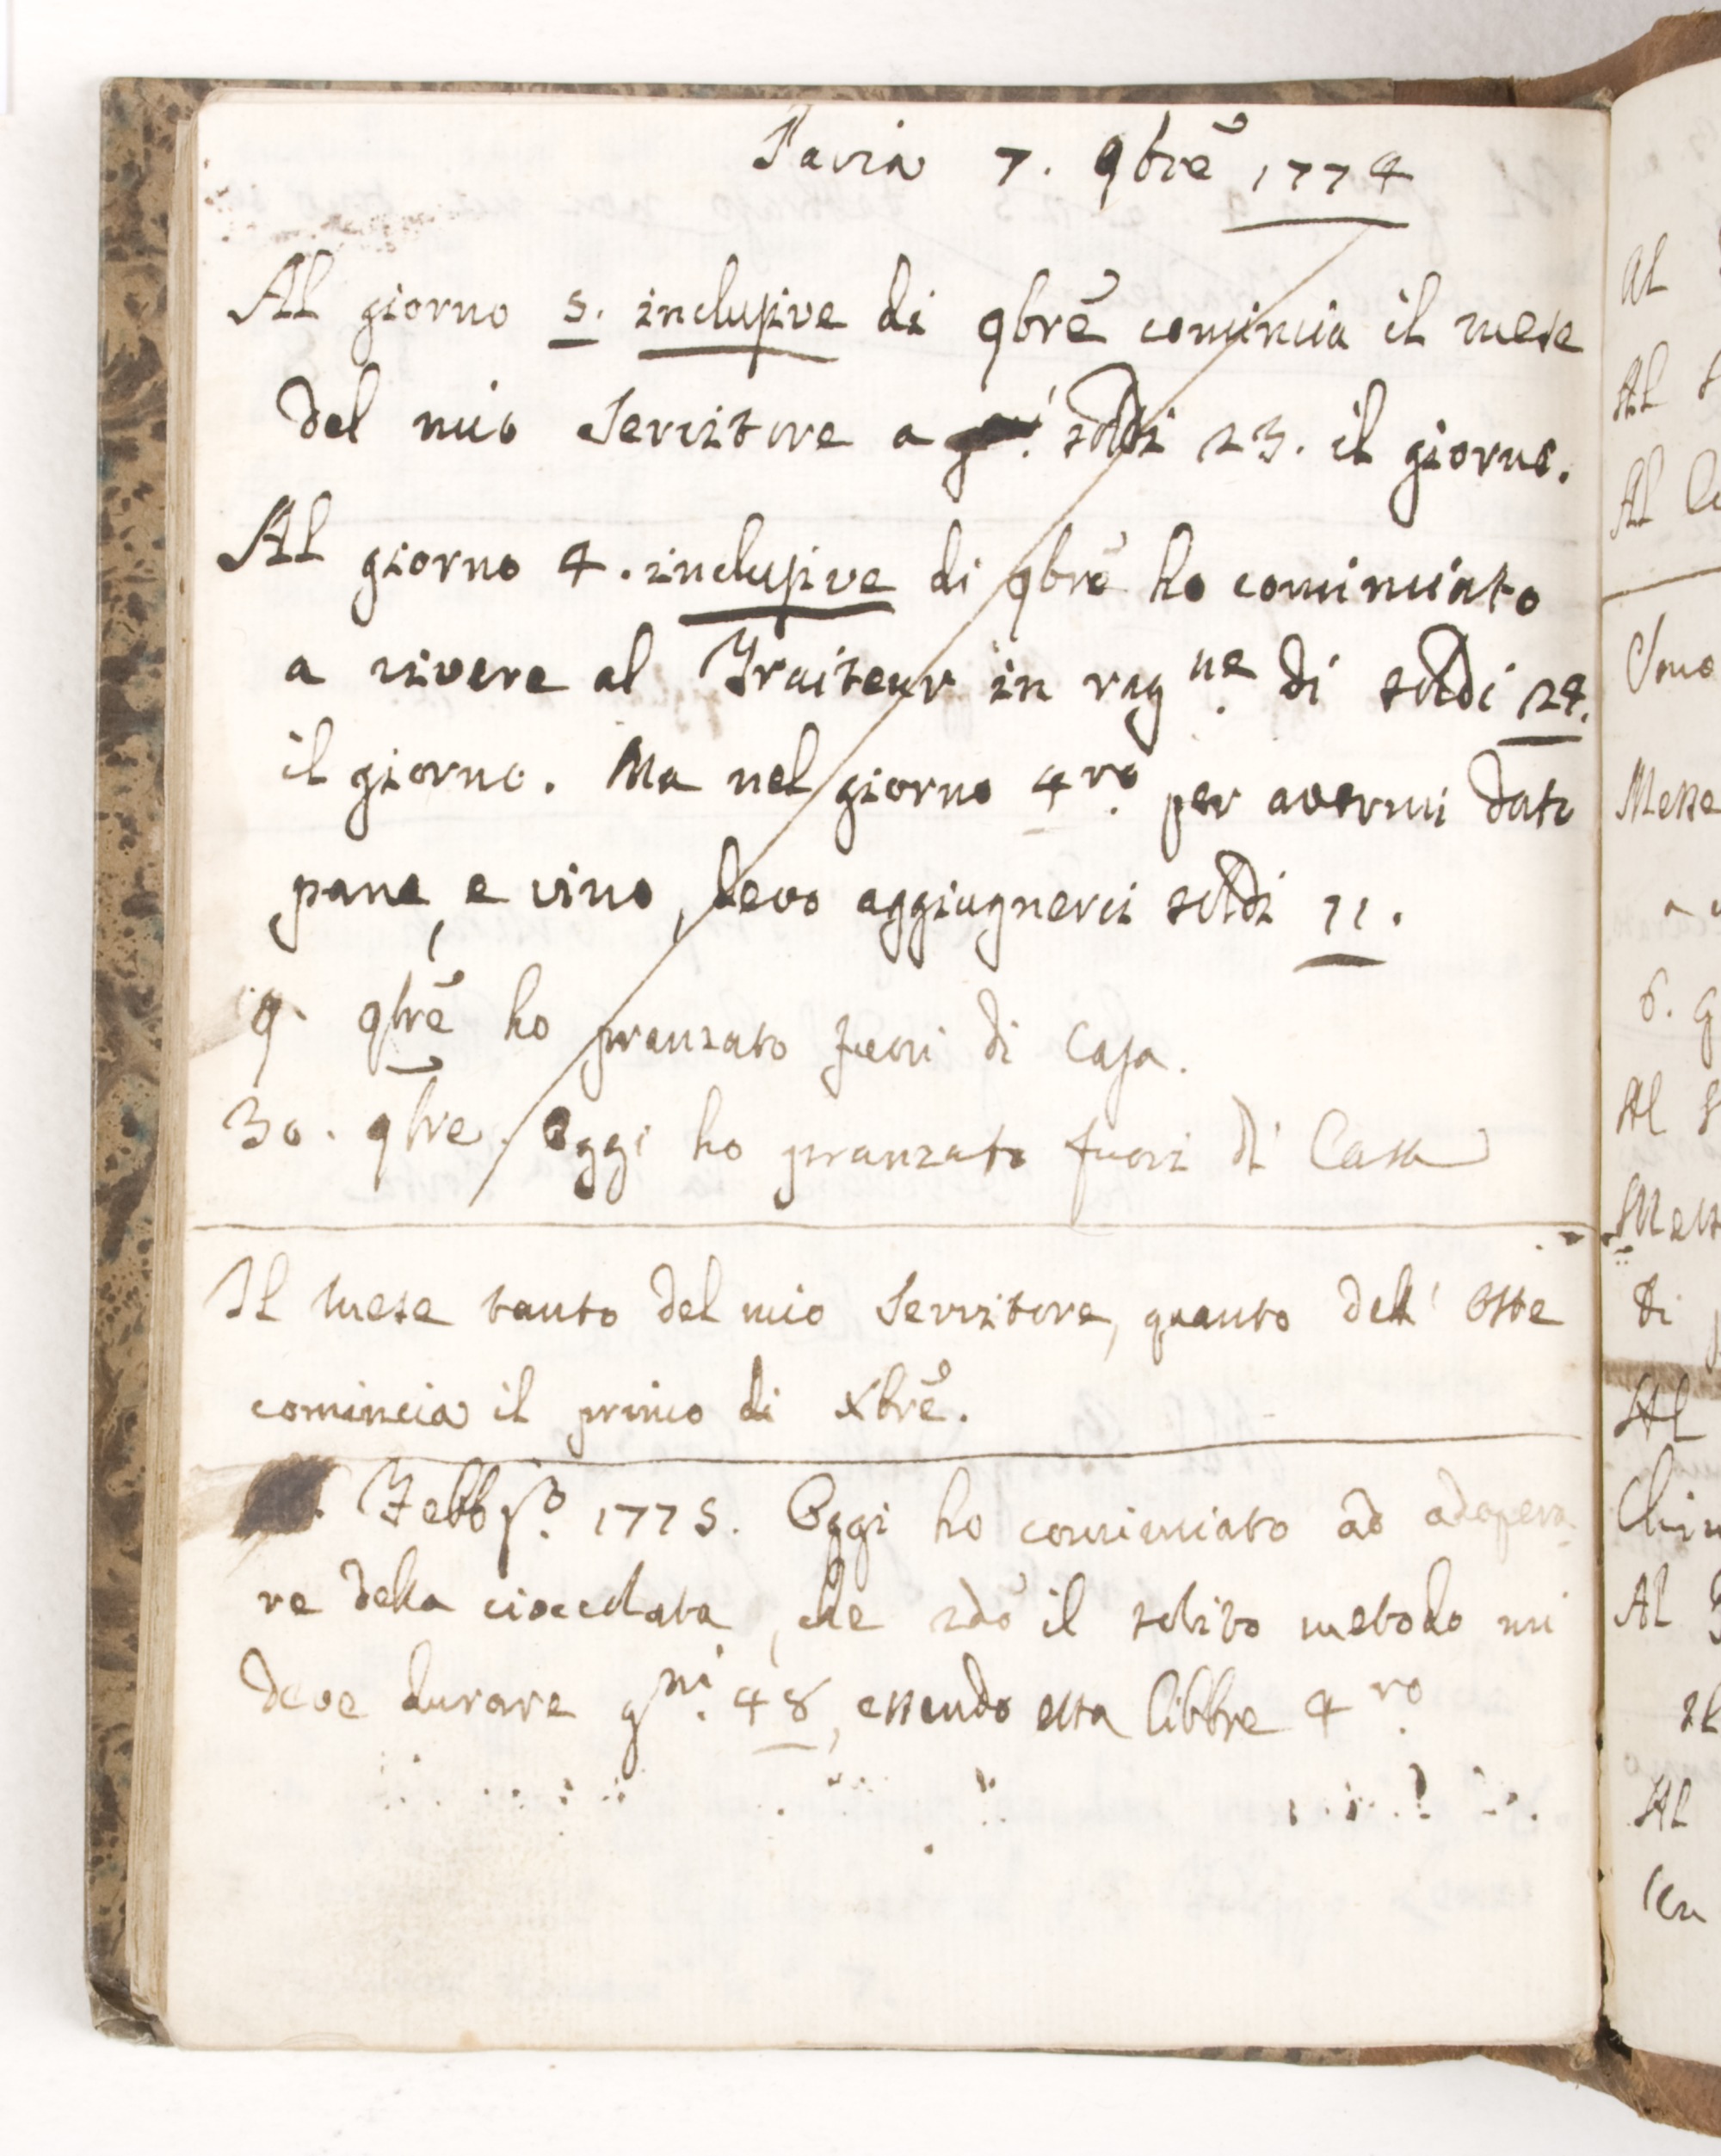 Pavia 7. 9bre 1774
Al giorno 5. inclusive di 9bre comincia il mese
del mio Servitore a soldi 23. il giorno.
Al giorno 4. inclusive di 9bre ho cominciato
a vivere al Traiteur in ragne. di soldi 24.
il giorno. Ma nel giorno 4ro. per avermi dato
pane, e vino, devo aggiugnerci soldi 11.
9. 9bre ho pranzato fuori di Casa.
30. 9bre. Oggi ho pranzato fuori di Casa
Il mese tanto del mio Servitore, quanto dell' Oste
comincia il primo di Xbre.
Febbjo. 1775. Oggi ho cominciato ad adopera
re della cioccolata, che sdo il solito metodo mi
deve durare gni. 48, essendo essa libbre 4ro.
Al
Al
Al
Sono
Messe
6.
Al
di
Al
Al
Al